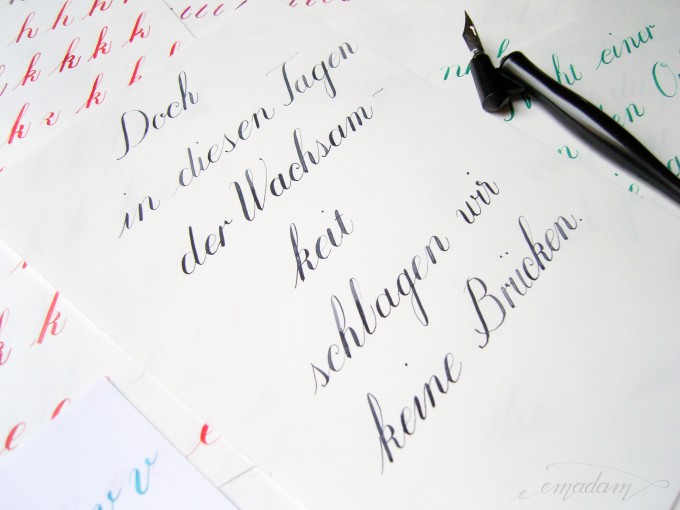 h h h k k
k k k k k
k k k k
Doch
in diesen Tagen
der Wachsam~
keit
schlagen wir
keine Brücken.
einer
k k
v v
emadam